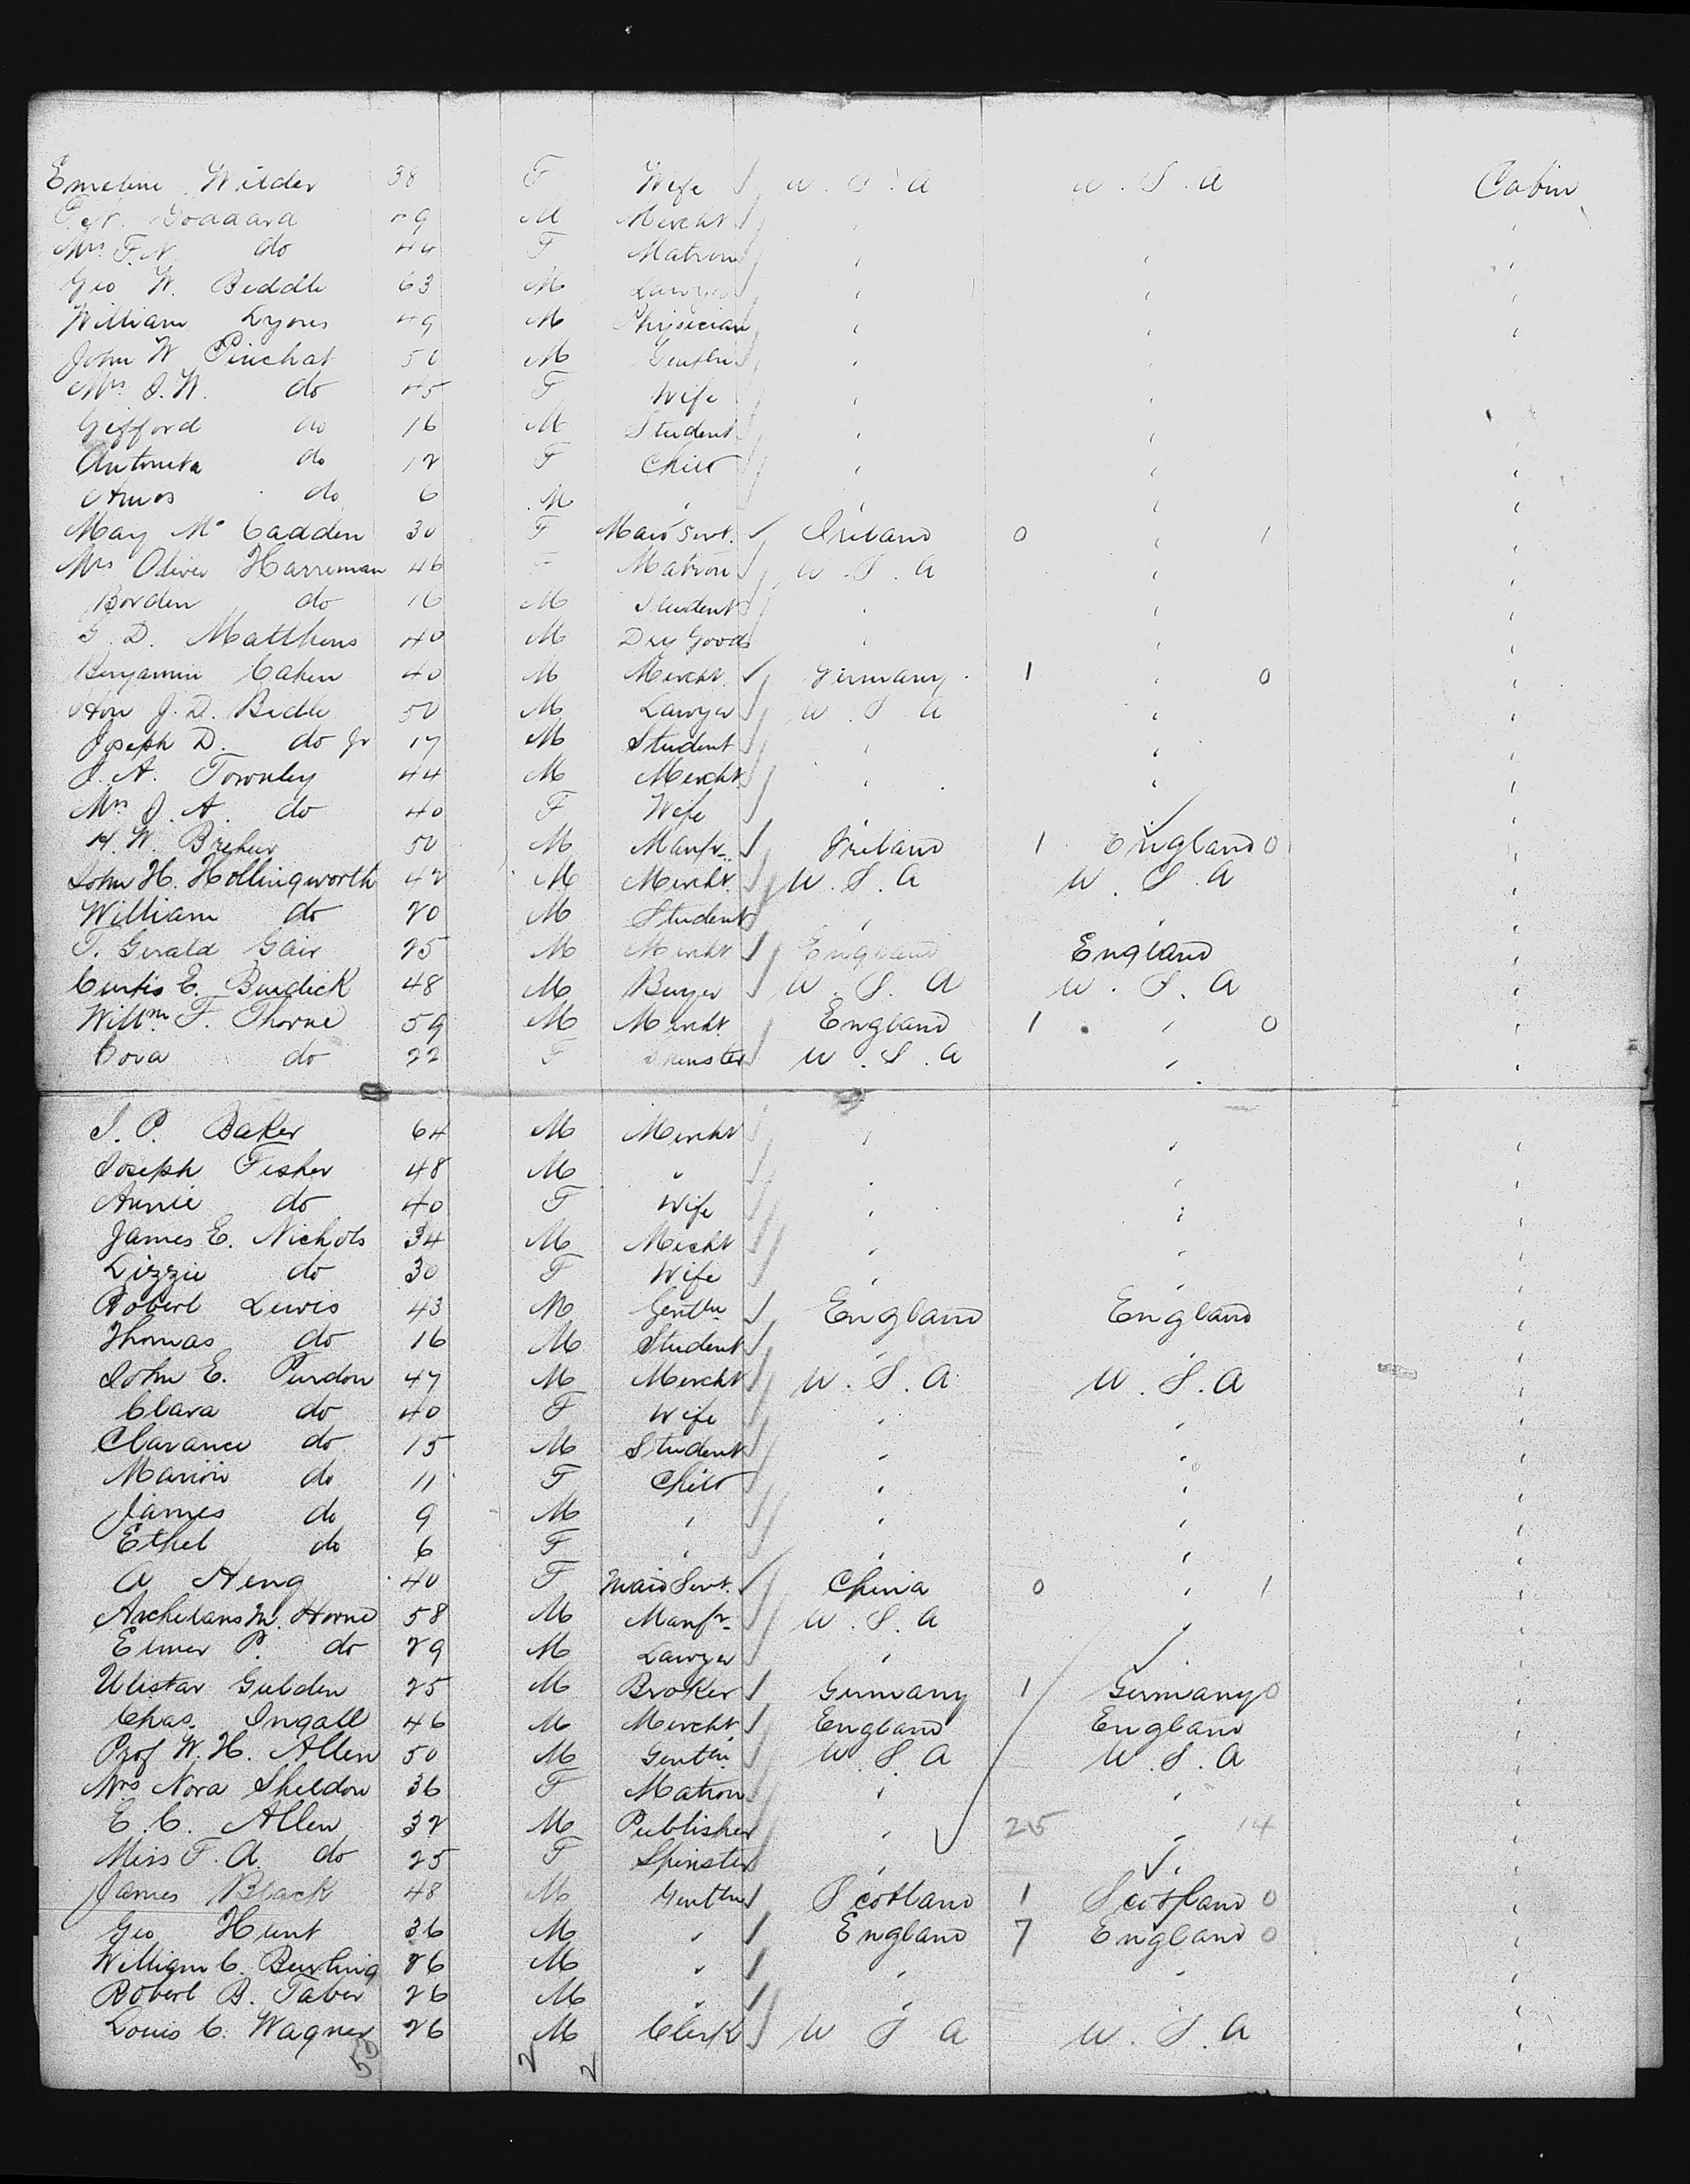 Emeline Wilder 38 F Wife U.S.A U.S.A Cabin
Goddard M Mercht
Mrs F.N. do 44 F Matron " " "
Geo W. Beddle 63 M Lawyer " " "
William Lyons 49 M Physician " " "
John W Pinchat 50 M Gentln " " "
Mrs J.W. do 45 F Wife " " "
Gifford do 16 M Student " " "
Antonita do 12 F Child " " "
Amos do 6 M " " "
May Mc Cadden 30 F Maid Servt. Ireland 0 " 1 "
Mrs Oliver Harriman 46 F Matron U.S.A " "
Borden do 16 M Student " " "
G.D. Matthews 40 M Dry Goods " " "
Benjamin Cahen 40 M Mercht. Germany 1 " 0 "
Hon J.D. Bedle 50 M Lawyer U S A " "
Joseph D. do Jr 17 M Student " " "
J.A. Townley 44 M Mercht " " "
Mrs J.A. do 40 F Wife " "
H.W. 50 M Manfr. Ireland 1 England 0 "
John H. Hollingworth 42 M Mercht. U.S.A U.S.A "
William do 20 M Student " " "
T. Gerald Gair 25 M Mercht England England "
Curtis E. Burdick 48 M Buyer U.S.A U.S.A "
Willm F. Thorne 59 M Mercht. England 1 " 0 "
Cora do 22 F Spinster U.S.A " "
J.P. Baker 64 M Mercht " " "
Joseph Fisher 48 M " " " "
Annie do 40 F Wife " " "
James E. Nichols 34 M Mecht " " "
Lizzie do 30 F Wife " " "
Robert Lewis 43 M Gentln England England "
Thomas do 16 M Student " " "
John E. Purdon 47 M Mercht U.S.A U.S.A "
Clara do 40 F Wife " " "
Clarance do 15 M Student " " "
Marion do 11 F Child " " "
James do 9 M " " " "
Ethel do 6 F " " " "
A Heng 40 F Maid Servt. China 0 " 1 "
Archelans M. Horne 58 M Manfr. U.S.A " "
Elmer P. do 29 M Lawyer " "
Gulden 25 M Broker Germany 1 Germany 0 "
Chas. Ingall 46 M Mercht England England "
Prof W.H. Allen 50 M Gentln U.S.A U.S.A "
Mrs Nora Sheldon 36 F Matron " " "
E.C. Allen 32 M Publisher " 25 " 14 "
Miss F.A. do 25 F Spinster " " "
James Black 48 M Gentln Scotland 1 Scotland 0 "
Geo Hunt 36 M " England 7 England 0 "
William C. Burling 26 M " " " "
Robert B. Taber 26 M " " "
Louis C. Wagner 26 M Clerk U S A U.S.A "
53 2 2